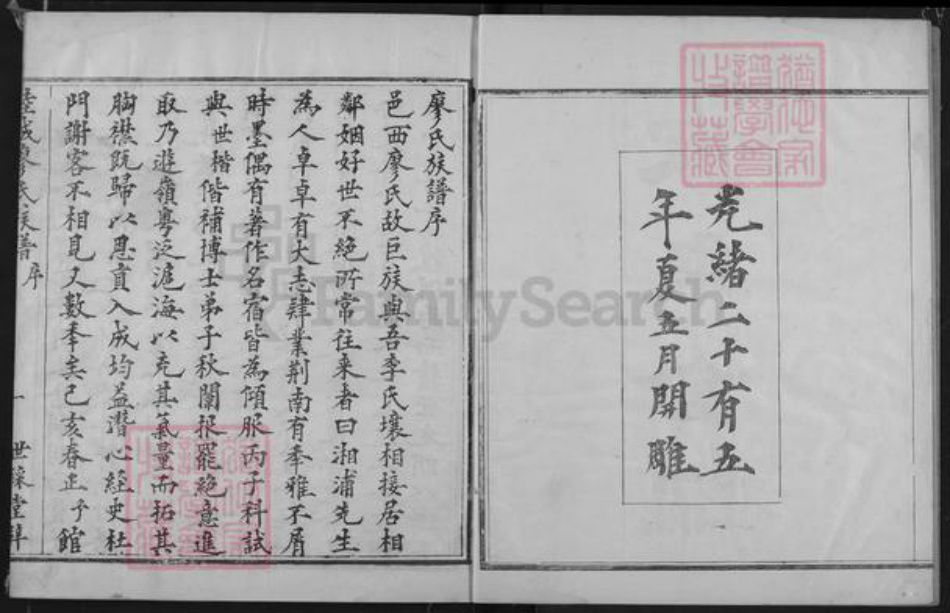 光緒二十有五
年夏五月開雕
廖氏族譜序
邑西廖氏故巨族與吾李氏壤相接居相
鄰姻好世不絕所常往来者曰湘浦先生
為人卓卓有大志肄業荆南有季雅不屑
時墨偶有著作名宿皆為傾服丙子科試
與世楷偕補博士弟子秋闈报罷絶意進
取乃遊嶺粤泛滬海以充其氣量而拓其
胸襟既歸以恩貢入成均益潛心經史杜
門謝客不相見又數季矣己亥春正予館
廖氏族譜 序
一
世綵堂
FamilySearch